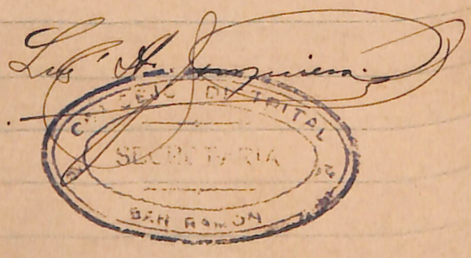 Luis A. Junquiera
CONCEJO DISTRITAL
SECRETARIA
SAN RAMON